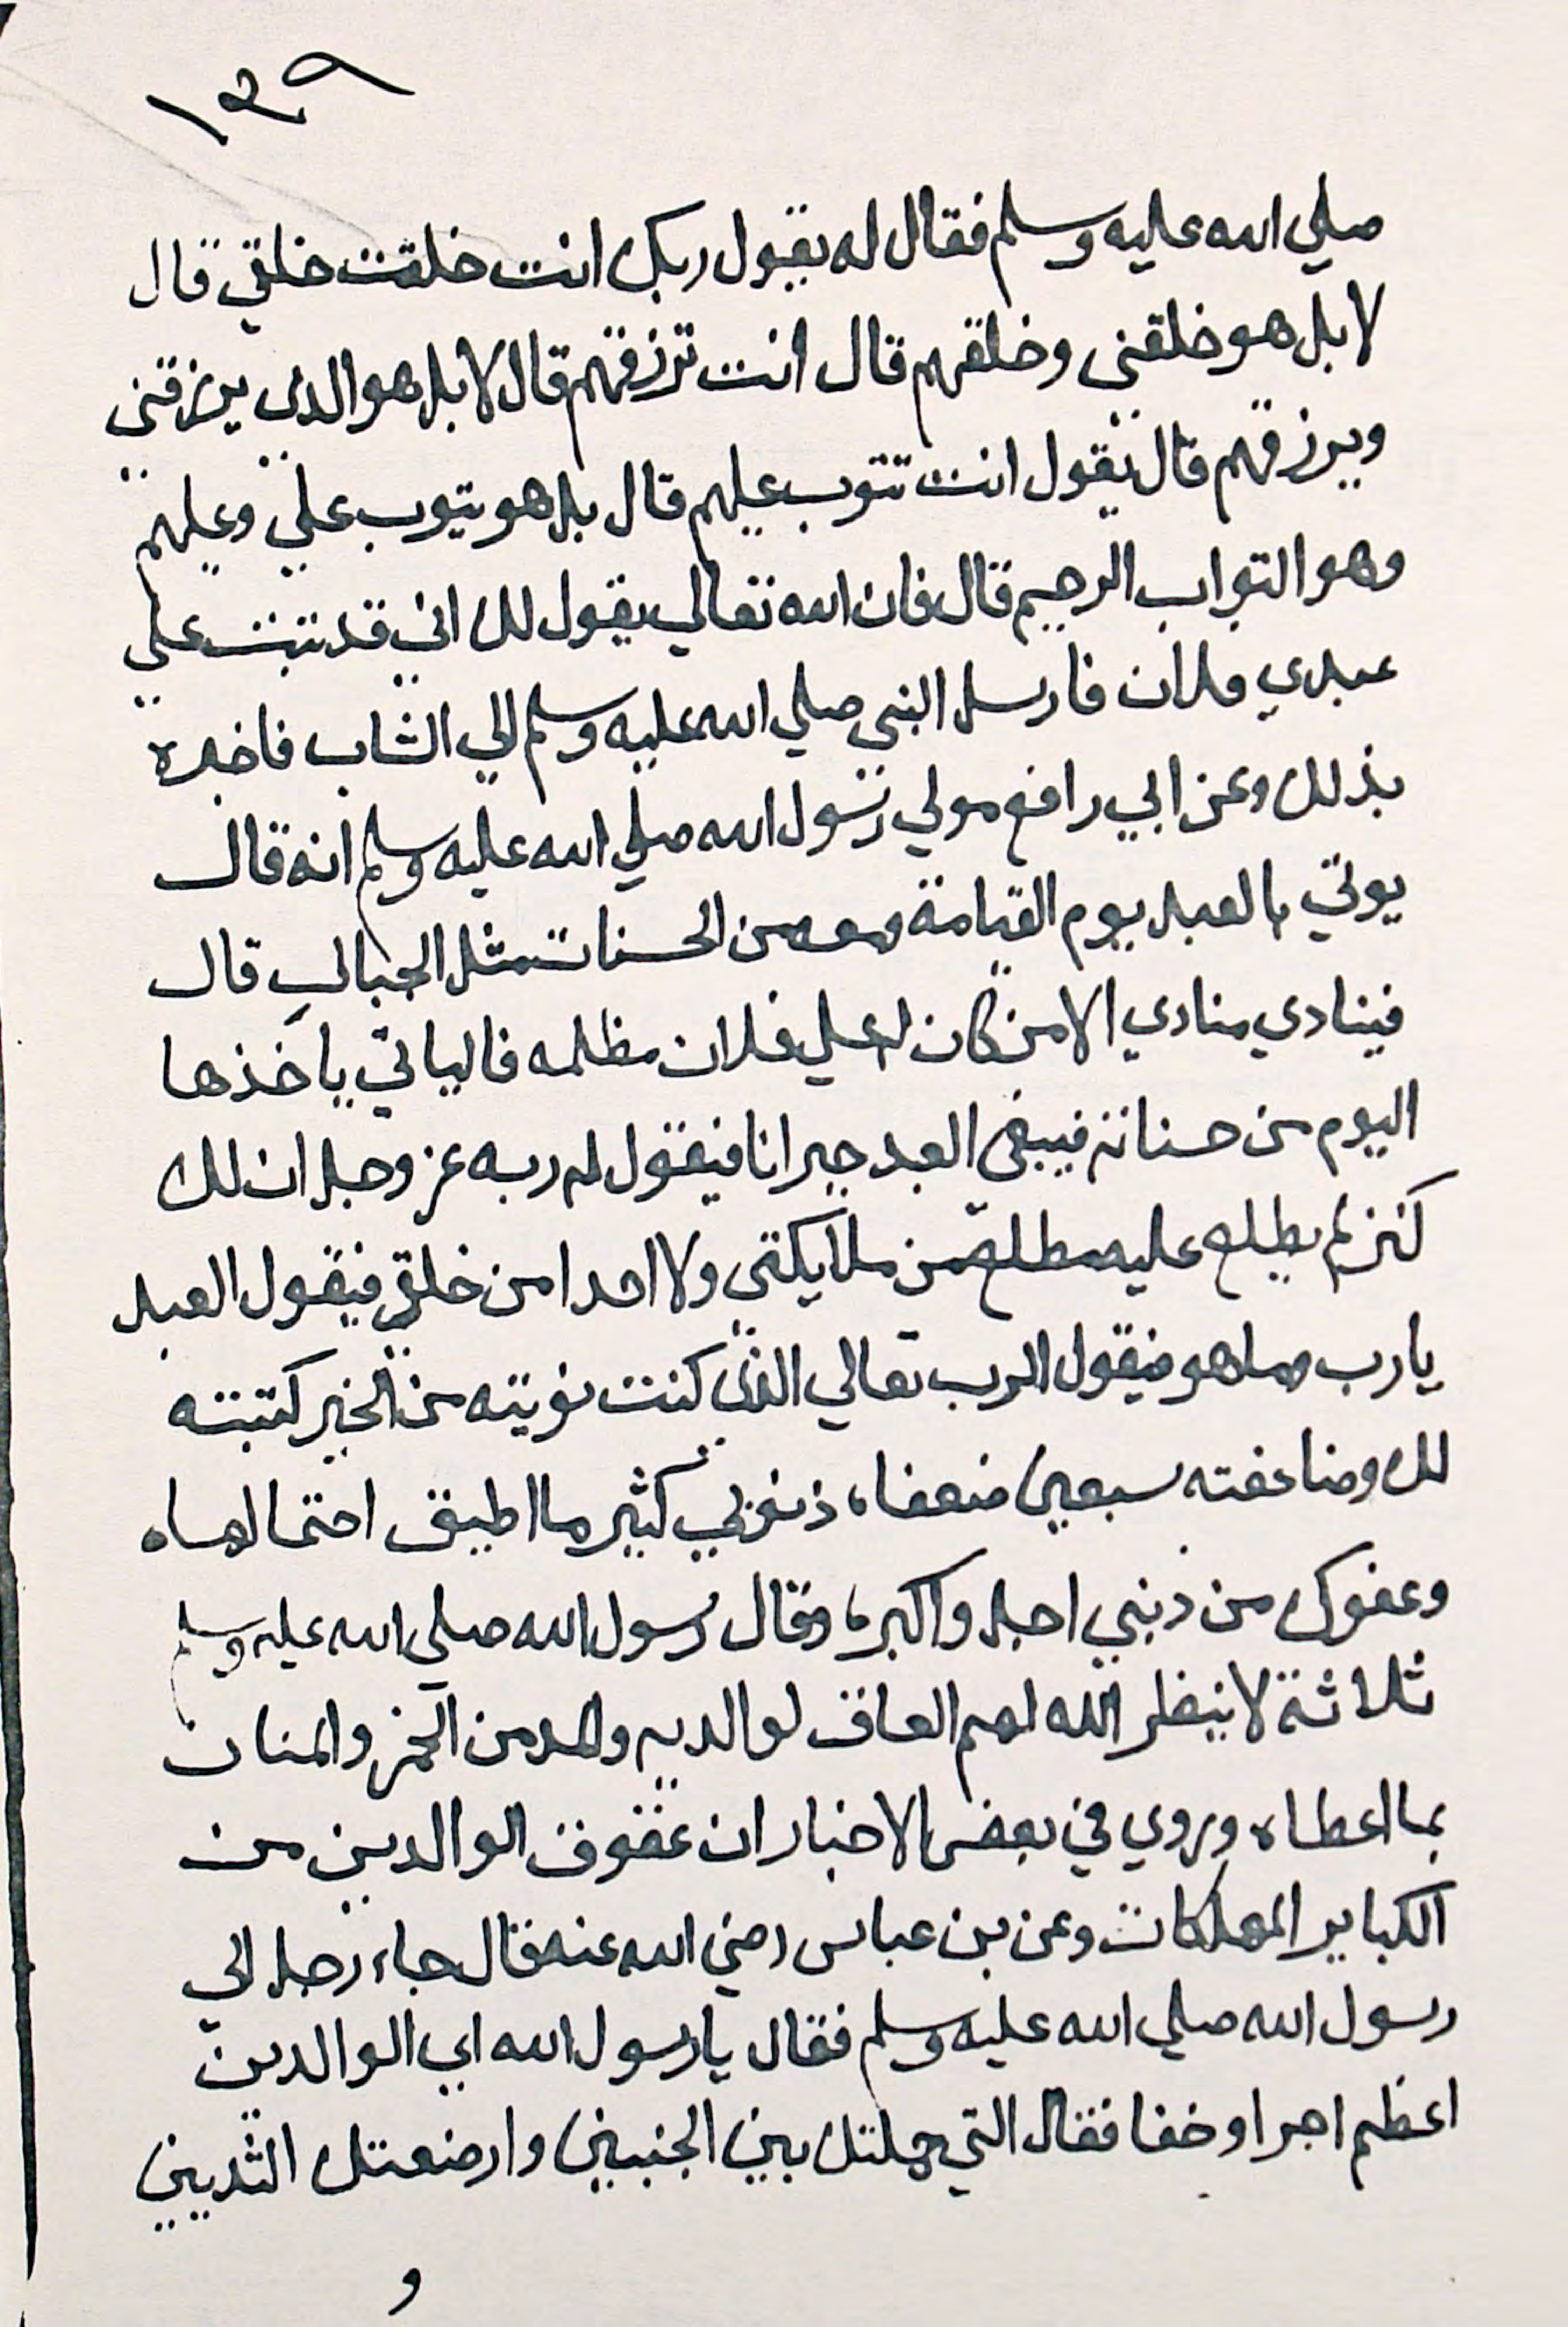 ١٣٩
صلي الله عليه وسلم فقال له يقول ربك انت خلقت خلقي قال
لا بل هو خلقني وخلقهم قال انت ترزقهم قال لا بل هو الذى يرزقني
ويرزقهم قال يقول انت تتوب عليهم قال بل هو يتوب علي وعليهم
وهو التواب الرحيم قال فان الله تعالي يقول لك اني قد تبت علي
عبدي فلان فارسل النبي صلي الله عليه وسلم الي الشاب فاخبره
بذلك وعن ابي رافع مولي رسول الله صلي الله عليه وسلم انه قال
يوتي بالعبد يوم القيامة ومعه من الحسنات مثل الجبال قال
فينادي منادي الا من كان له علي فلان مظلمه فالياتي ياخذها
اليوم من حسناته فيبقى العبد حيرانا فيقول له ربه عز وجل ان لك
كنز لم يطلع عليه مطلع من ملايكتي ولا احدا من خلقي فيقول العبد
يارب وما هو فيقول الرب تعالي الذى كنت نويته من الخير كتبته
لك وضاعفته سبعين ضعفا، ذنوبي كثير ما اطيق احتمالها ه
وعفوك من ذنبي اجل واكبر، وقال رسول الله صلي الله عليه وسلم
ثلاثة لا ينظر الله لهم العاق لوالديه والمدمن الخمر والمنان
بما اعطاه وروي في بعض الاخبار ان عقوق الوالدين من
الكباير المهلكات وعن بن عباس رضي الله عنه قال جاء رجل الي
رسول الله صلي الله عليه وسلم فقال يا رسول الله اي الوالدين
اعظم اجرا وحقا فقال التي حملتك بين الجنبين وارضعتك الثديين
و